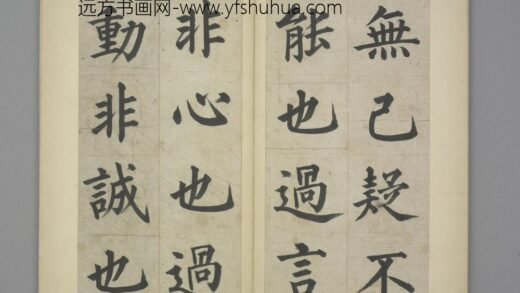 远方书画网-www.yfshuhua.com
無己疑不
能也過言
非心也過
動非誠也